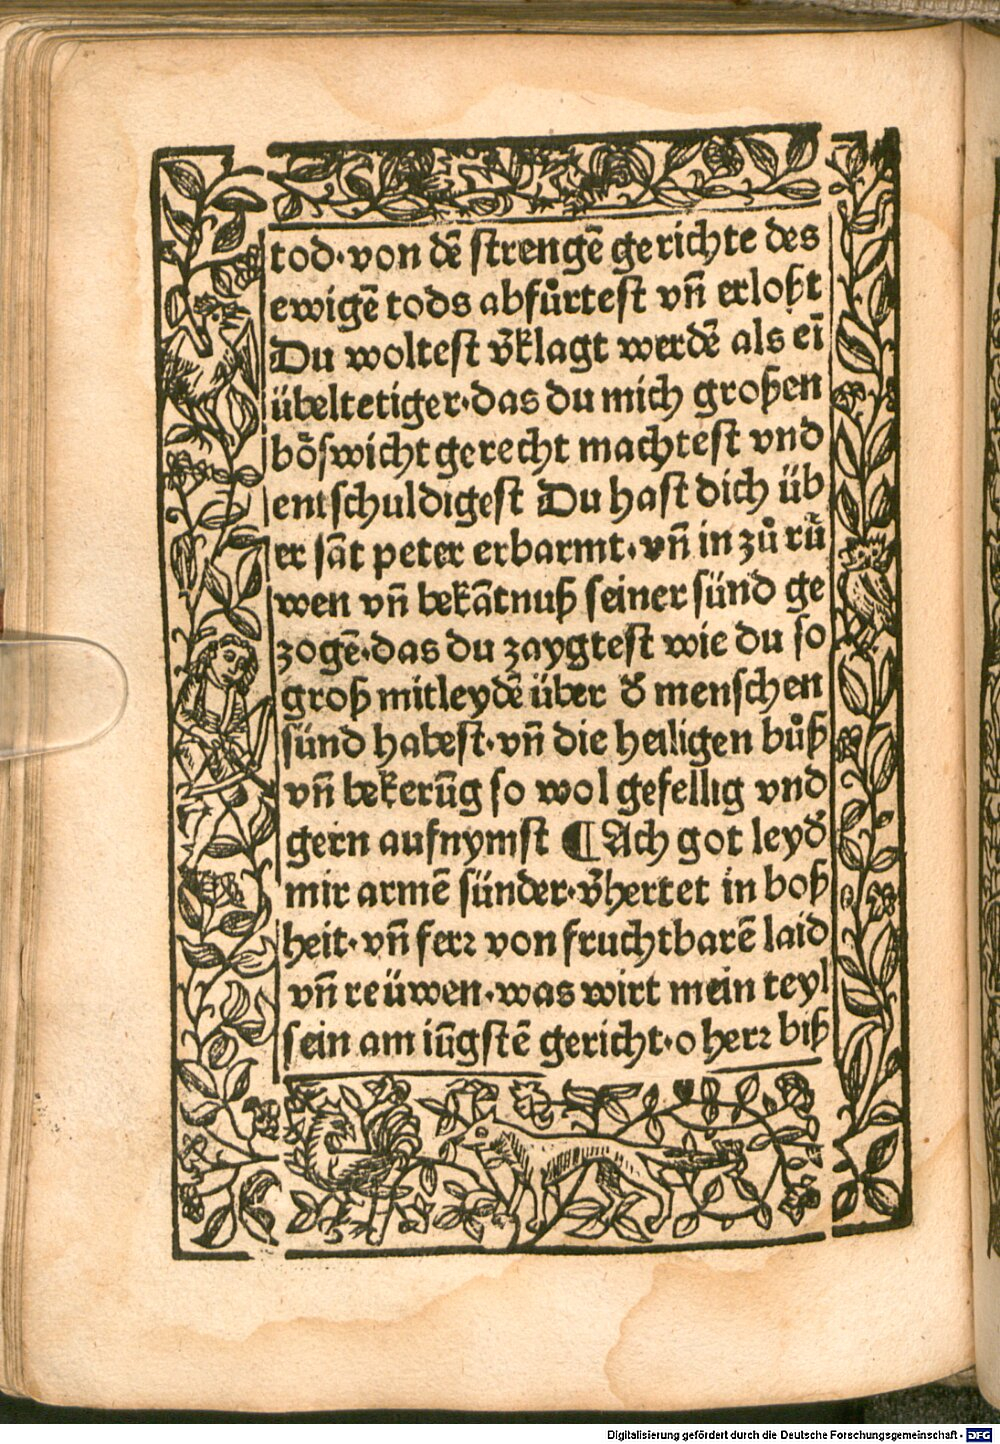 tod·von dē strengē gerichte des
ewigē tods abfůrtest vn̄ erloßt
Du woltest v̄klagt werdē als eī
übeltetiger·das du mich großen
bo᷑swicht gerecht machtest vnd
entschuldigest Du hast dich üb
er sāt peter erbarmt·vn̄ in zů rǖ
wen vn̄ bekātnuß seiner sünd ge
zogē·das du zaygtest wie du so
groß mitleydē über d̄ menschen
sünd habest·vn̄ die heiligen bůß
vn̄ bekerūg so wol gefellig vnd
gern aufnymst ¶ Ach got leyd̄
mir armē sünder·v̄hertet in boß
heit·vn̄ ferꝛ von fruchtbarē laid
vn̄ reüwen·was wirt mein teyl
sein am iūgstē gericht·o herꝛ biß
Digitalisierung gefördert durch die Deutsche Forschungsgemeinschaft - DFG